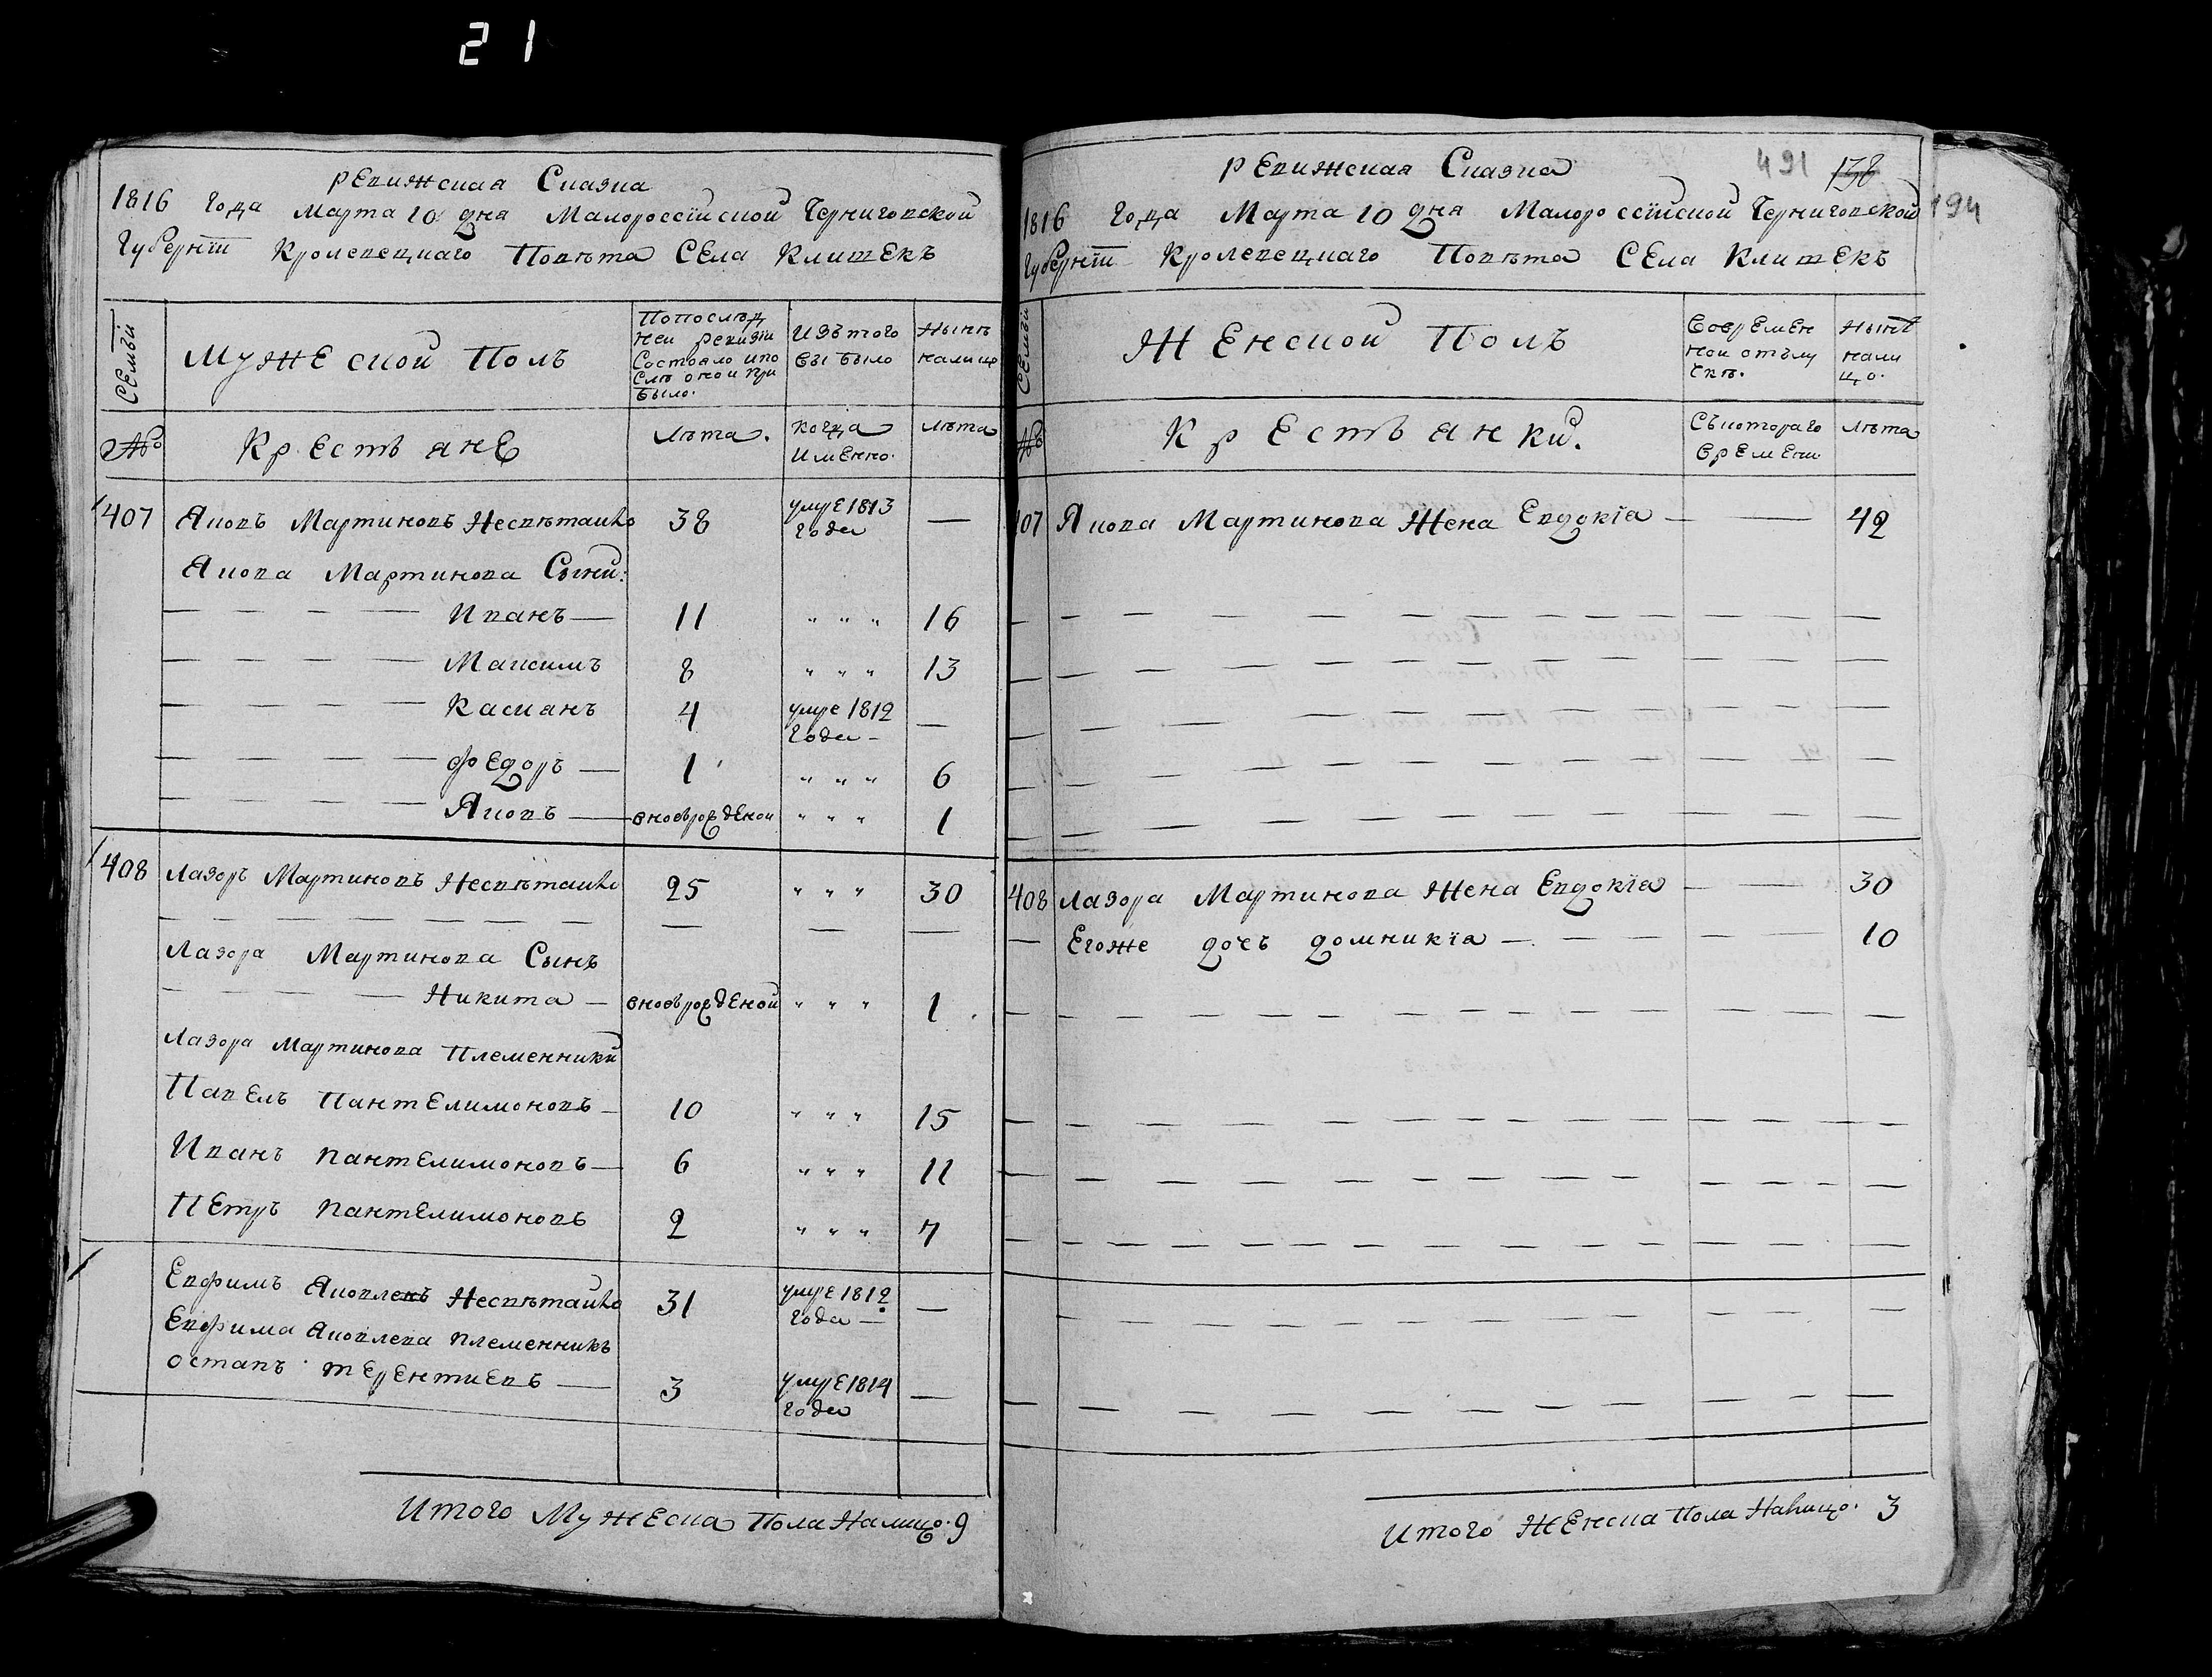 21
Ревижская Сказка
1816 Года Марта 10 дня Малороссійской Черниговской
Губерніи Кролевецкаго Повѣта Села Клишекъ
Семьи
Мужеской Полъ
Попослѣд
ней ревизіи
Состояло ипо
слѣ оной при
было.
Изъ того
выбыло
Нынѣ
налицо
№
Крестьяне
Лѣта.
когда
имЕнно.
Лѣта
407 Яковъ Мартиновъ Неспѣтайло 38 умре 1813 —
Года
Якова Мартинова Сыни:
Иванъ — 11 " " " 16
Максимъ 8 " " " 13
Касианъ 4 умре 1812 —
Года —
Федоръ — 1 " " " 6
Яковъ — вновьрожденой " " " 1
408 Лазоръ Мартиновъ Неспѣтайло 25 " " " 30
Лазора Мартинова Сынъ
Никита — вновьрожденой " " " 1
Лазора Мартинова Племенники
Павелъ Пантелимоновъ — 10 " " " 15
Иванъ Пантелимоновъ — 6 " " " 11
Петръ Пантелимоновъ 2 " " " 7
Евфимъ Яковленъ Неспѣтайло 31 умре 1812 —
Года —
Евфима Яковлева племенникъ
Остапъ Терентиевъ — 3 умре 1814 —
Года
Итого Мужеска Пола Налицо. 9
Ревижская Сказка
491 138
194
1816 Года Марта 10 дня Малороссійской Черниговской
Губерніи Кролевецкаго Повѣта Села Клишекъ
Семьи
Женской Полъ
Воврѣмен
ной отълу
чкѣ.
Нынѣ
нали
цо.
№
Крестьянки.
Съкотораго
времени
Лѣта
407 Якова Мартинова Жена Евдокіа — — 42
408 Лазора Мартинова Жена Евдокіа — — 30
Егоже дочь Домникіа — 10
Итого Женска Пола Налицо. 3